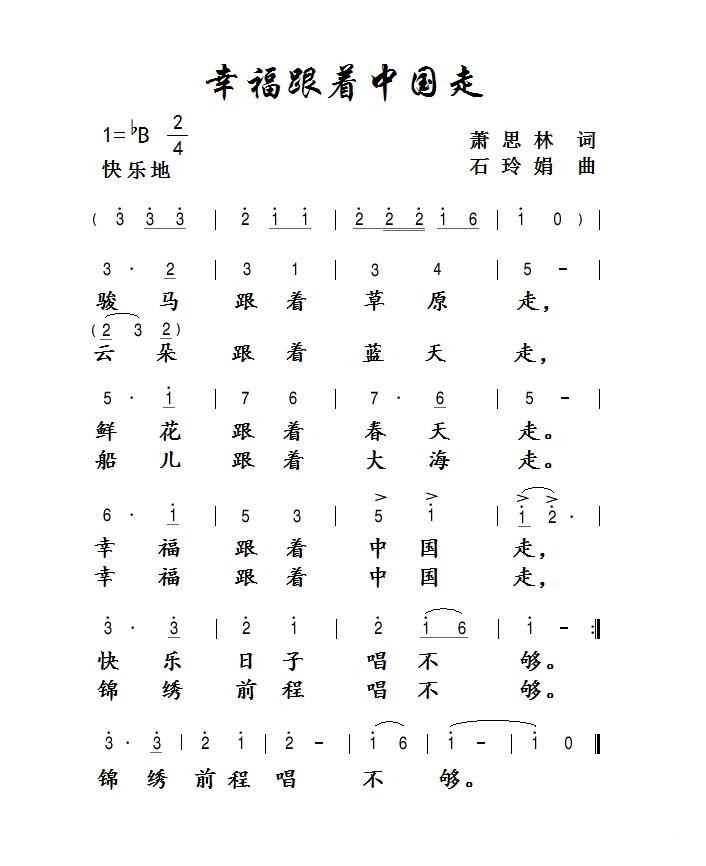 幸福跟着中国走
1=♭B 2/4
萧思林 词
快乐地
石玲娟 曲
( 3̇ 3̇ 3̇ | 2̇ 1̇ 1̇ | 2̇ 2̇ 2̇ 1̇ 6 | 1̇ 0 ) |
3 · 2 | 3 1 | 3 4 | 5 – |
骏马跟着草原走，
( 2 3 2 )
云朵跟着蓝天走，
5 · 1̇ | 7 6 | 7 · 6 | 5 – |
鲜花跟着春天走。
船儿跟着大海走。
6 · 1̇ | 5 3 | 5 1̇ | 1̇ 2̇ · |
幸福跟着中国走，
幸福跟着中国走，
3̇ · 3̇ | 2̇ 1̇ | 2̇ 1̇ 6 | 1̇ – :‖
快乐日子唱不够。
锦绣前程唱不够。
3̇ · 3̇ | 2̇ 1̇ | 2̇ – | 1̇ 6 | 1̇ – | 1̇ 0 ‖
锦绣前程唱不够。